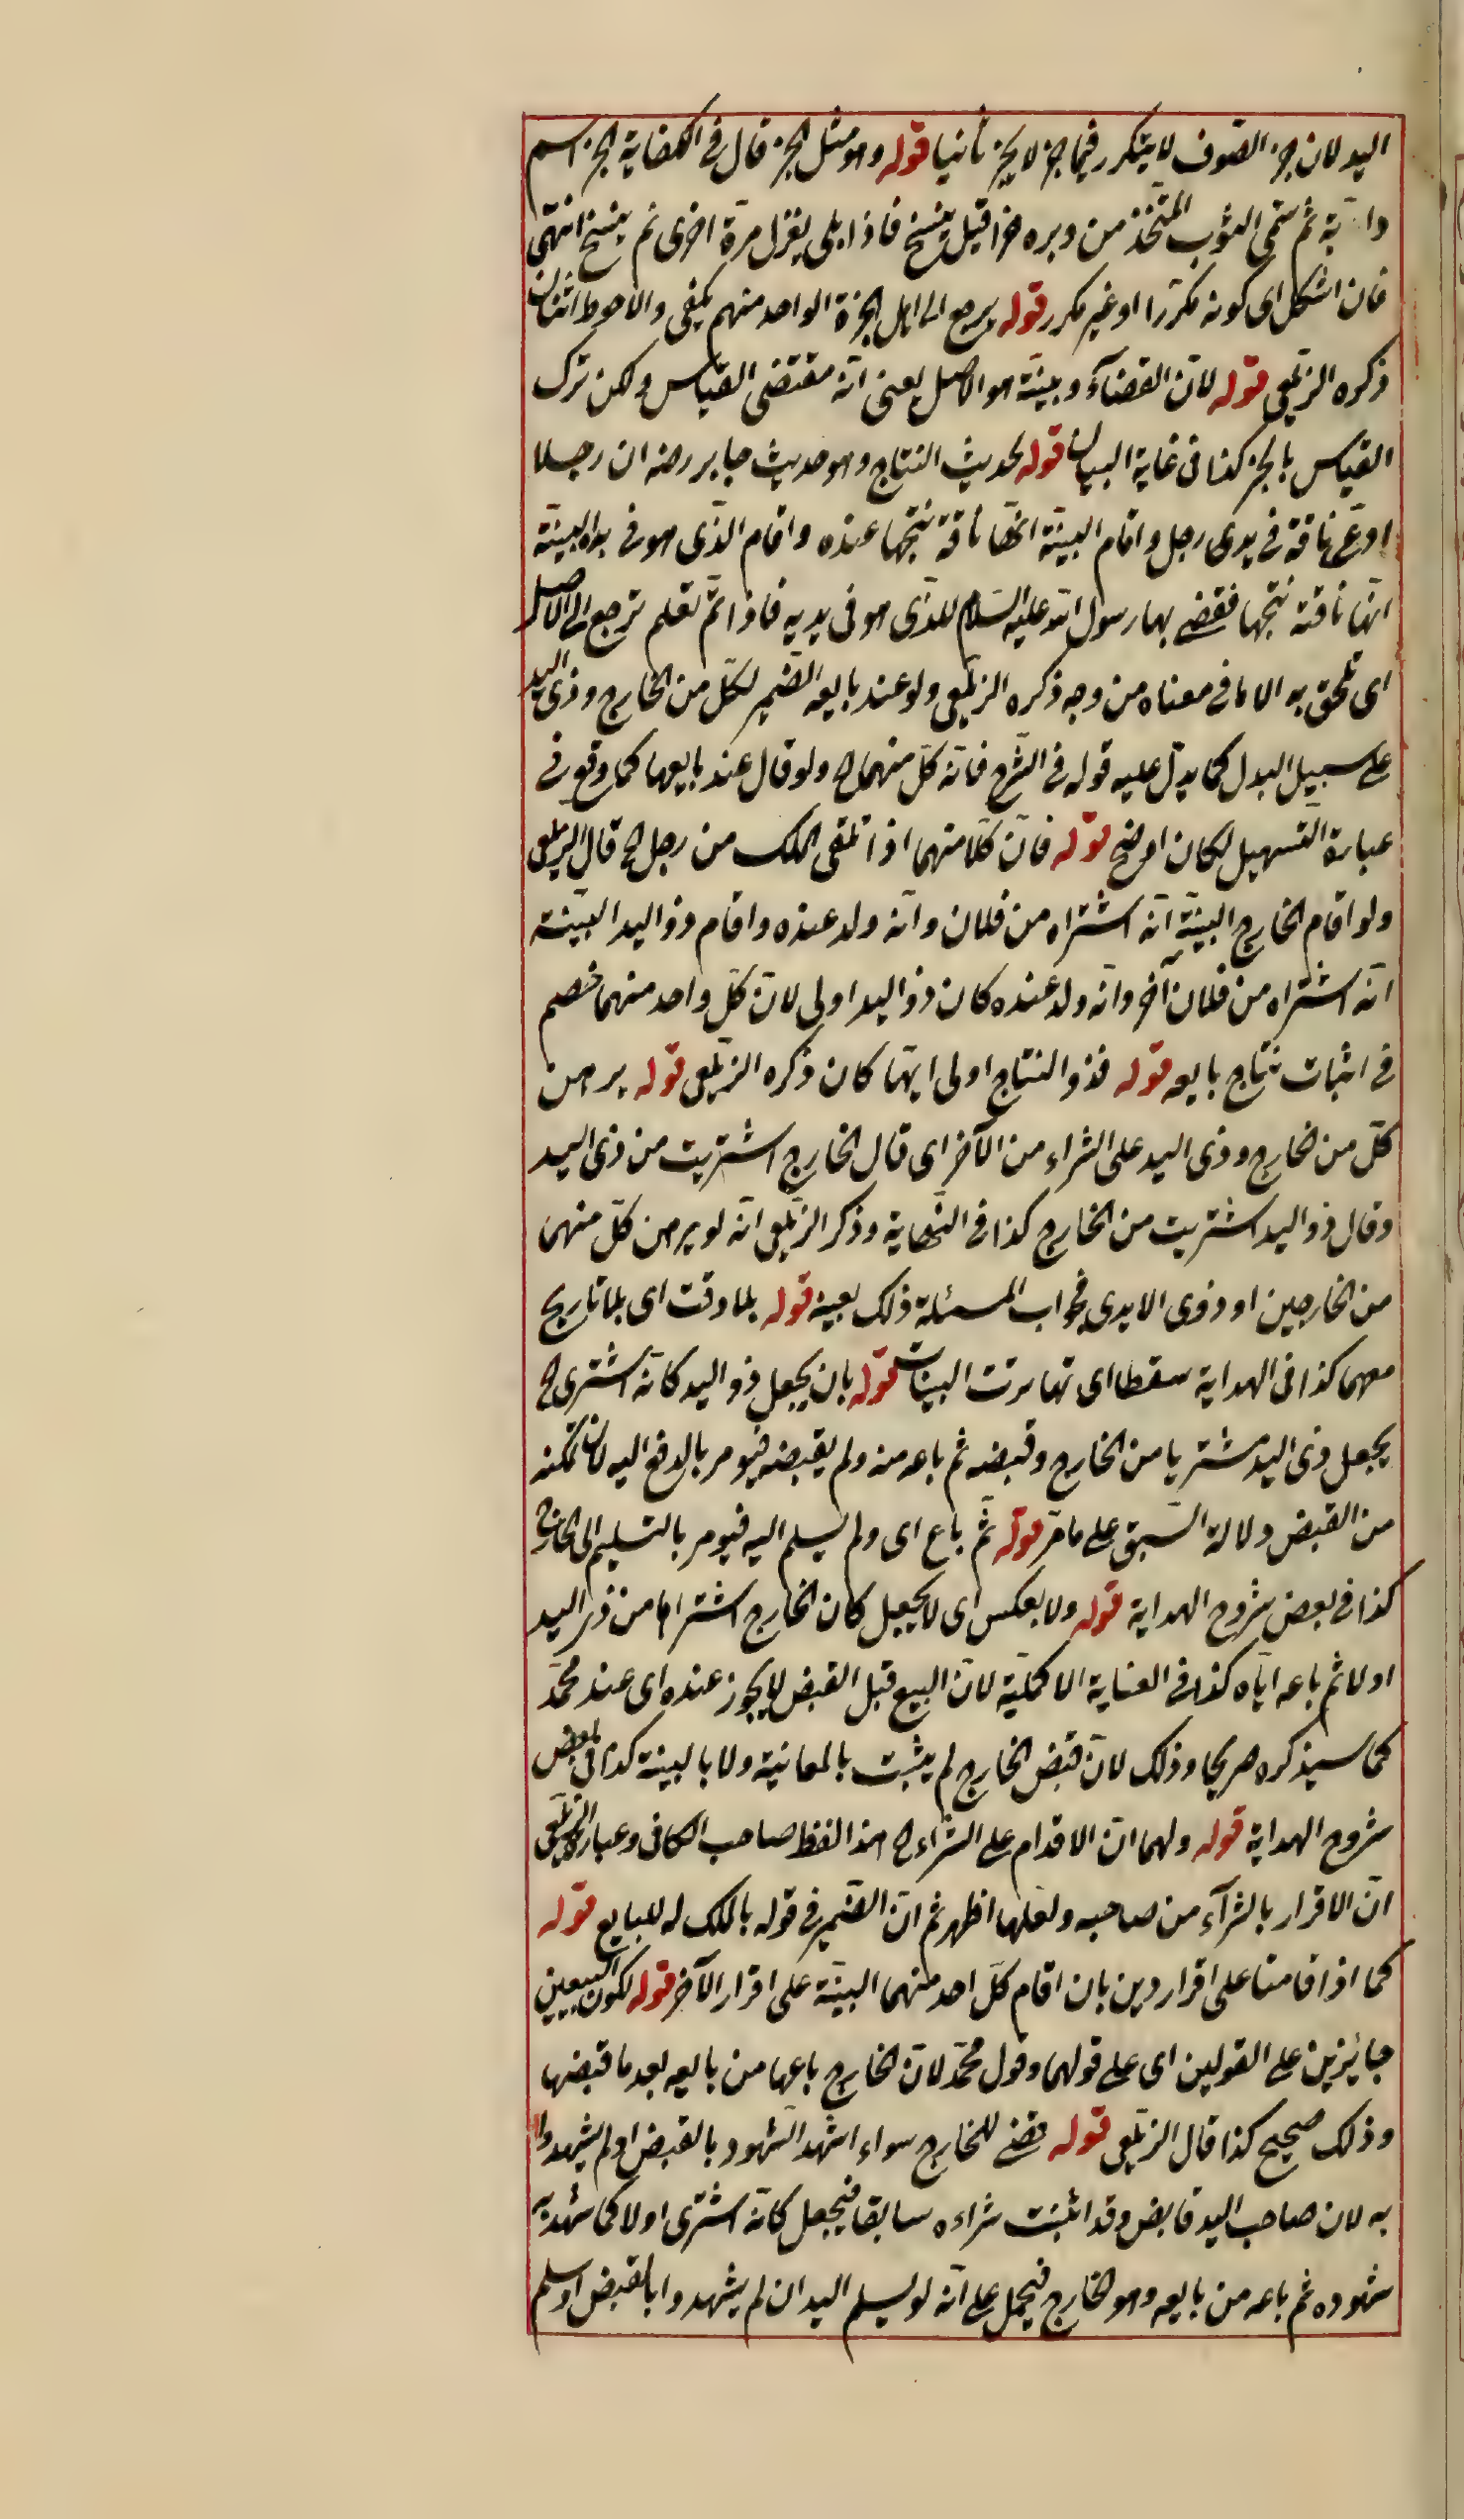 اليد لان جز الصوف لا يتكرر فيما جز لا يجز ثانيا قوله وهو مثل الخز قال في الكفاية الخز اسم
دابة ثم سمى الثوب المتخذ من وبره خزا قيل ينسخ فاذا بلى يغزل مرة اخرى ثم ينسخ انتهى
فان اشكل اى كونه مكررا او غير مكرر قوله يرجع الى اهل الخبرة الواحد منهم يكفى والاحوط اثنان
ذكره الزيلعى قوله لان القضآء وبينة هو الاصل يعنى انه مقتضى القياس ولكن ترك
القياس بالخبر كذا فى غاية البيان قوله لحديث النتاج وهو حديث جابر رضه ان رجلا
ادعى ناقة فى يدى رجل واقام البينة انها ناقة نتجها عنده واقام الذى هو فى يده البينة
انها ناقته نتجها فقضى بها رسول الله عليه السلام للذى هو فى يديه فاذا لم تعلم ترجع الى الاصل
اى تلحق به الا ما فى معناه من وجه ذكره الزيلعى ولو عند بايعه الضمير لكل من الخارج وذى اليد
على سبيل البدل كما يدل عليه قوله فى الشرح فانه كل منهما الح ولو قال عند بايعهما كما وقع فى
عبارة التسهيل لكان اوضح قوله فان كلا منهما اذا تلقى الملك من رجل الح قال الزيلعى
ولو اقام الخارج البينة انه اشتراه من فلان وانه ولد عنده واقام ذو اليد البينة
انه اشتراه من فلان آخر وانه ولد عنده كان ذو اليد اولى لان كل واحد منهما خصم
فى اثبات نتاج بايعه قوله فذو النتاج اولى ايهما كان ذكره الزيلعى قوله برهن
كل من خارج وذى اليد على الشراء من الآخر اى قال الخارج اشتريت من ذى اليد
وقال ذو اليد اشتريت من الخارج كذا فى النهاية وذكر الزيلعى انه لو برهن كل منهما
من الخارجين او ذوى الايدى فجواب المسئلة ذلك بعينه قوله بلا وقت اى بلا تاريخ
معهما كذا فى الهداية سقطا اى تهاترت البينات قوله بان يجعل ذو اليد كانه اشترى الح
يجعل ذى اليد مشتريا من الخارج وقبضه ثم باعه منه ولم يقبضه فيومر بالدفع اليه لان تمكنه
من القبض دلالة السبق على ما مر قوله ثم باع اى ولم يسلم اليه فيومر بالتسليم الى الخارج
كذا فى بعض شروح الهداية قوله ولا يعكس اى لا يجعل كان الخارج اشتراها من ذى اليد
اولا ثم باعه اياه كذا فى العناية الاكملية لان البيع قبل القبض لا يجوز عنده اى عند محمد
كما سيذكره صريحا وذلك لان قبض الخارج لم يثبت بالمعاينة ولا بالبينة كذا فى بعض
شروح الهداية قوله ولهما ان الاقدام على الشراء الح هذا لفظ صاحب الكافى وعبارة الزيلعى
ان الاقرار بالشرآء من صاحبه ولعلها اظهر ثم ان الضمير فى قوله بالملك له للبايع قوله
كما اذا قامتا على اقرارين بان اقام كل احد منهما البينة على اقرار الآخر قوله لكون البيعين
جائزين على القولين اى على قولهما وقول محمد لان الخارج باعها من بايعه بعد ما قبضها
وذلك صحيح كذا قال الزيلعى قوله قضى للخارج سواء شهد الشهود بالقبض او لم يشهدوا
به لان صاحب اليد قابض وقد اثبت شراءه سابقا فيجعل كانه اشترى اولا كما شهد به
شهوده ثم باعه من بايعه وهو الخارج فيحمل على انه لو يسلم اليه ان لم يشهدوا بالقبض او سلم